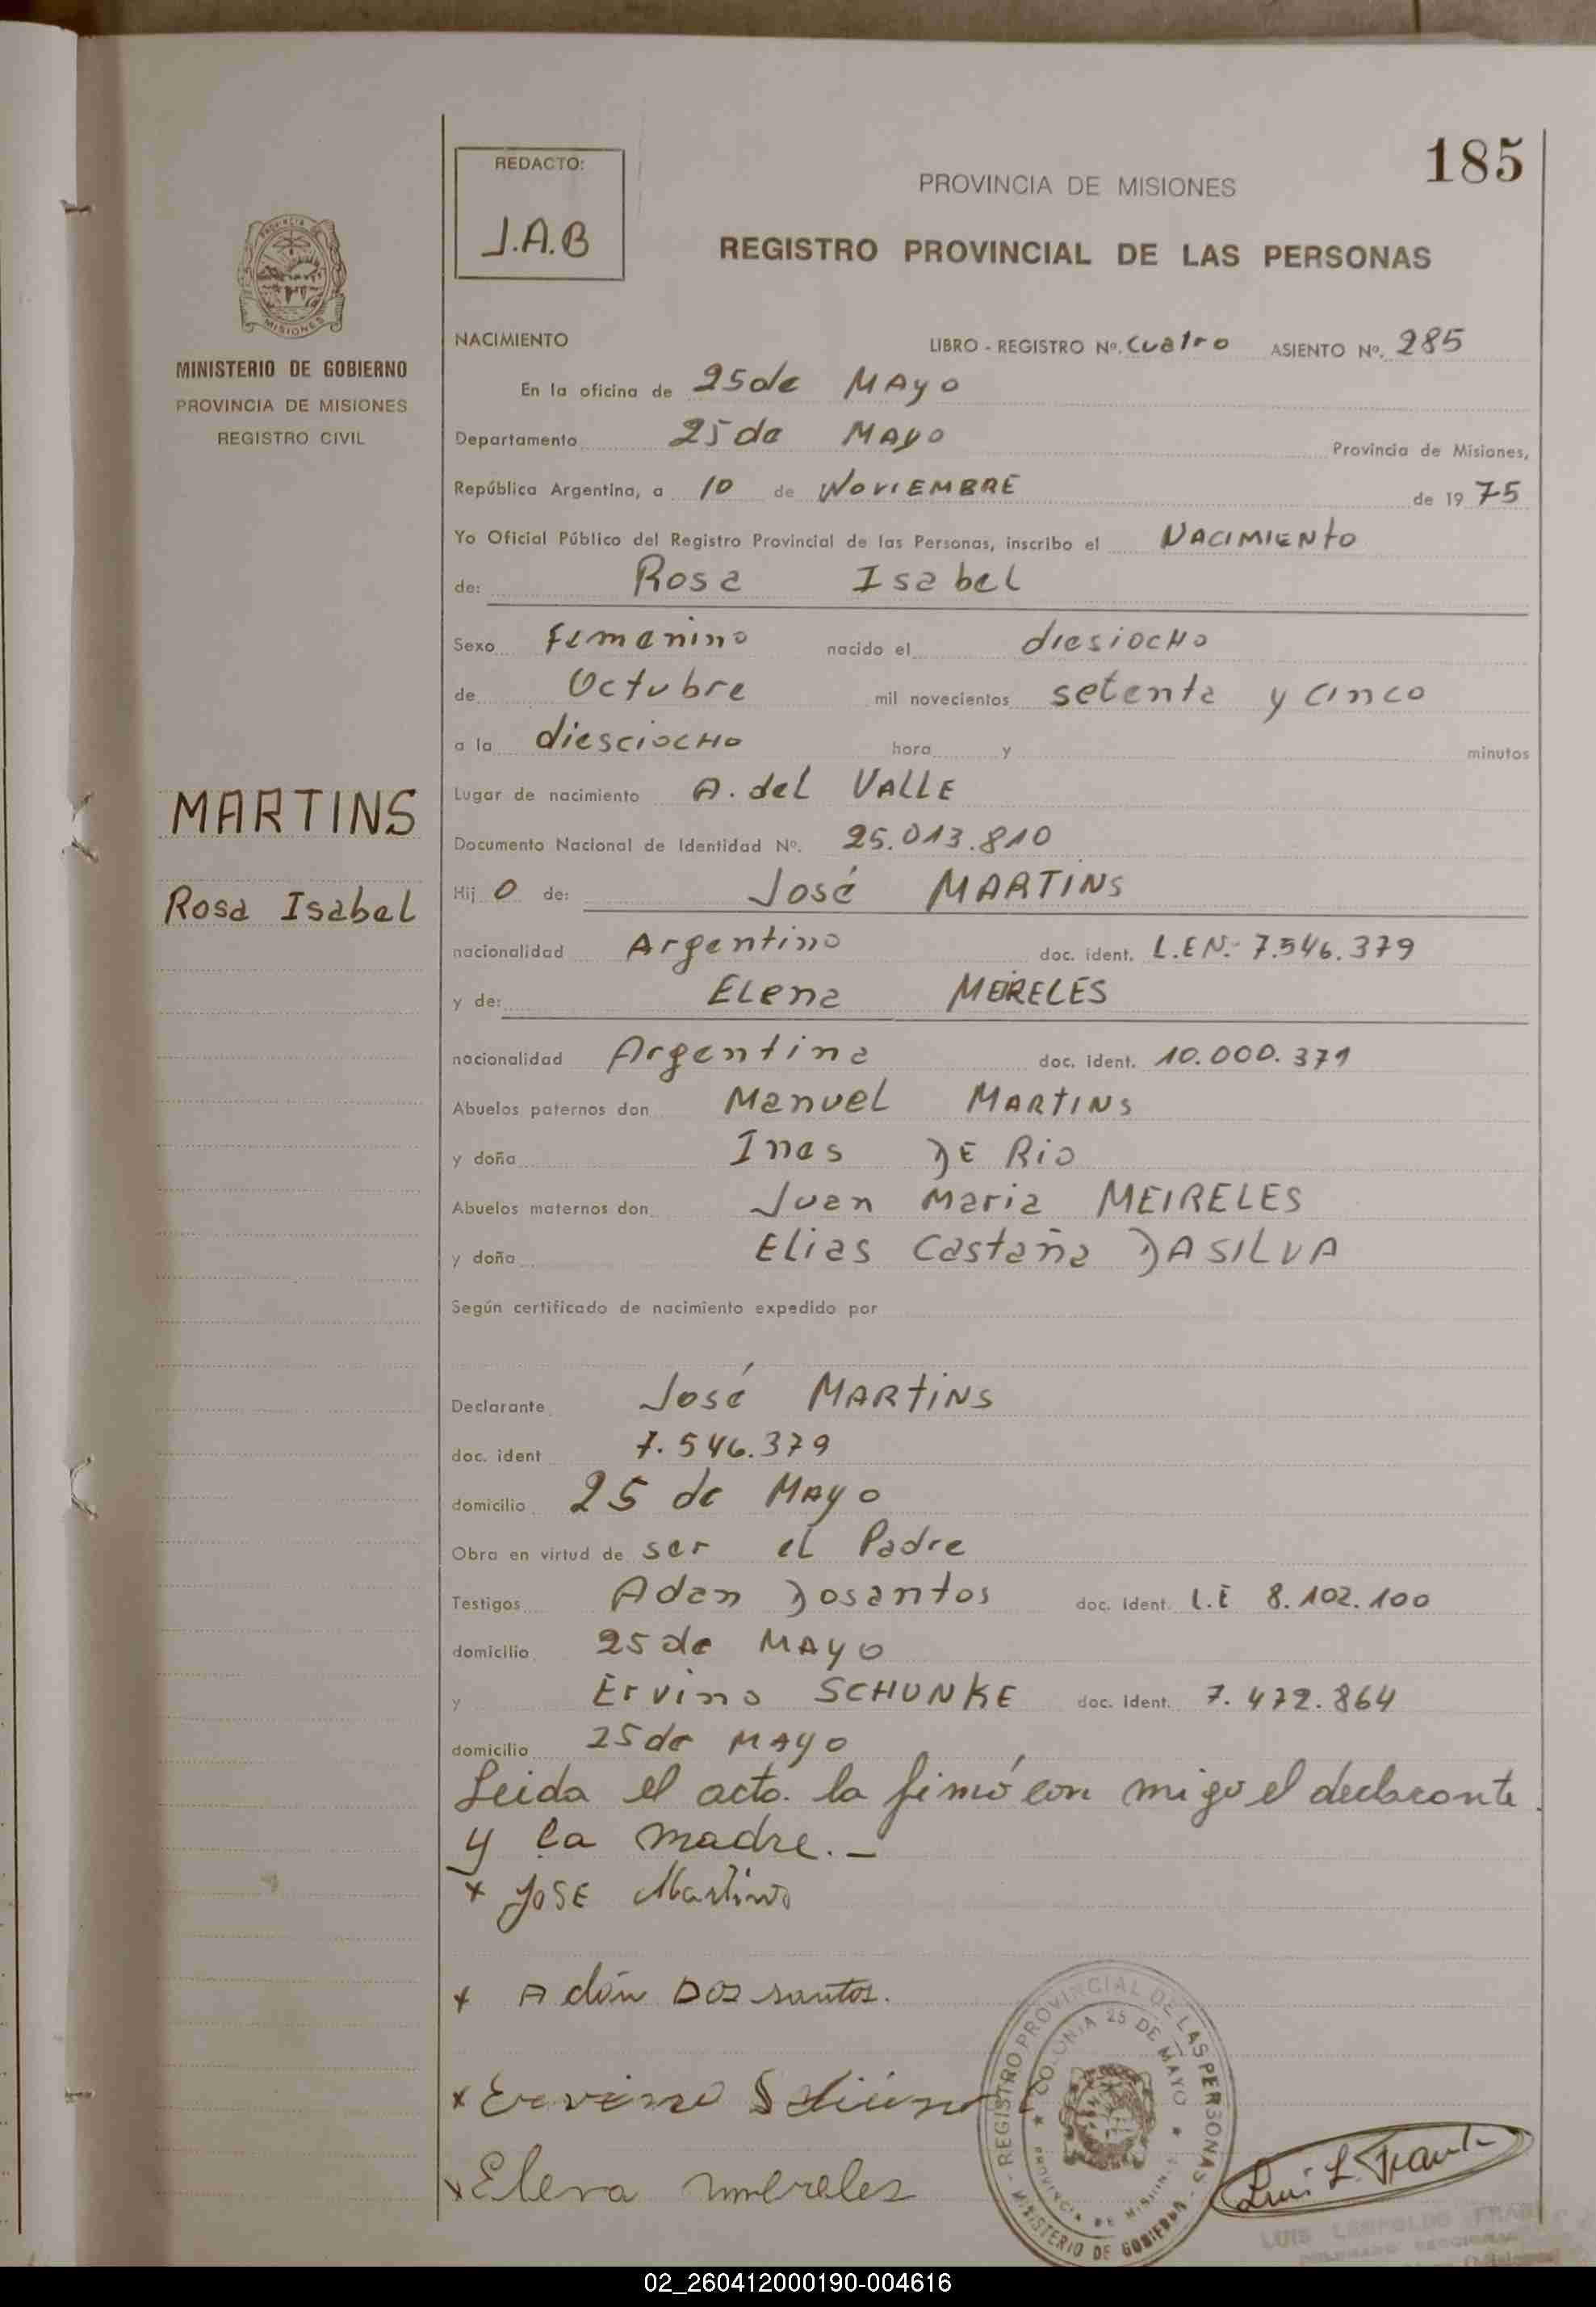 185
REDACTO:
J.A.B
PROVINCIA DE MISIONES
REGISTRO PROVINCIAL DE LAS PERSONAS
MISIONES
MINISTERIO DE GOBIERNO
PROVINCIA DE MISIONES
REGISTRO CIVIL
MARTINS
Rosa Isabel
NACIMIENTO LIBRO - REGISTRO Nº. Cuatro ASIENTO Nº. 285
En la oficina de 25 de MAyo
Departamento 25 de MAyo Provincia de Misiones,
República Argentina, a 10 de NOVIEMBRE de 1975
Yo Oficial Público del Registro Provincial de las Personas, inscribo el NACIMIENto
de: Rosa Isabel
Sexo Femenino nacido el diesiocHo
de Octubre mil novecientos setenta y cinco
a la diesciocHo hora y minutos
Lugar de nacimiento A. del VALLE
Documento Nacional de Identidad Nº. 25.013.810
Hij O de: José MARTINS
nacionalidad Argentino doc. ident. L.EN.- 7.546.379
y de: Elena MEIRELES
nacionalidad Argentina doc. ident. 10.000.371
Abuelos paternos don Manuel MARTINS
y doña Ines DE Rio
Abuelos maternos don Juan Maria MEIRELES
y doña Elias Castaña DASILVA
Según certificado de nacimiento expedido por
Declarante José MARtiNS
doc. ident 7.546.379
domicilio 25 de MAyo
Obra en virtud de ser el Padre
Testigos Adan Dosantos doc. ident. L.E 8.102.100
domicilio 25 de MAyo
y Ervino SCHUNKE doc. ident. 7.472.864
domicilio 25 de MAyo
Leida el acto. la fimó con migo el declarante
y la madre.-
x JOSE Martins
x Adán Dos santos.
x Ervino
x Elena
REGISTRO PROVINCIAL DE LAS PERSONAS - MINISTERIO DE GOBIERNO -
COLONIA 25 DE MAYO
PROVINCIA DE MISIONES
Luis L.
LUIS LEOPOLDO
02_260412000190-004616